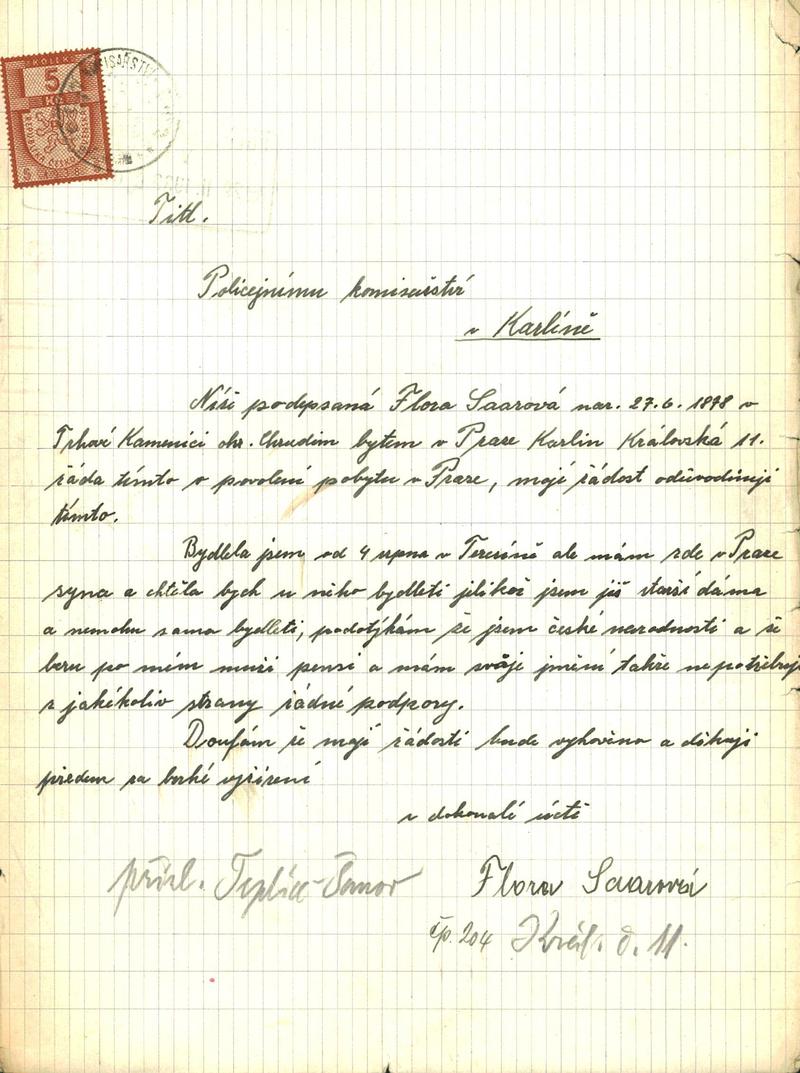 KOLEK
5
Kč
Titl.
Policejnímu komisařství
v Karlíně
Níži podepsaná Flora Saarová nar. 27.6. 1878 v
Trhové Kamenici okr. Chrudim bytem v Praze Karlin Královská 11.
žáda tímto o povolení pobytu v Praze, mojí žádost odůvodinuji
tímto.
Bydlela jsem od 4 srpna v Terezíně ale mám zde v Praze
syna a chtěla bych u něho bydleti jelikož jsem již starší dáma
a nemohu sama bydleti, podotýkám že jsem české narodnosti a že
beru po mém muži pensi a mám svoje jmění takže nepotřebuji
z jakékoliv strany žádné podpory.
Doufám že mojí žádosti bude vyhověno a děkuji
předem za brzké vyřízení
v dokonalé úctě
přísl. Teplice-Šanov
Flora Saarová
čp. 204 Král. d. 11.